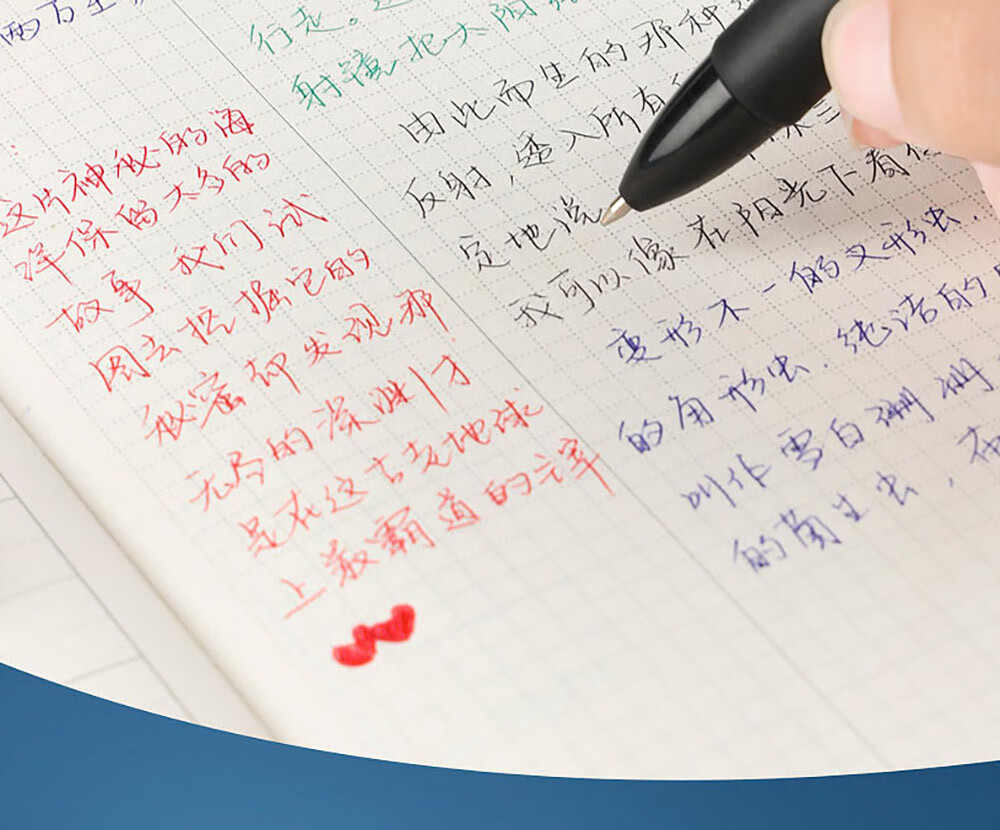 两万生
行走。这
射镜把太阳
这片神秘的海
洋保留太多的
故事 我们试
图去挖掘它的
秘密却发现那
无尽的深渊才
是在这古老地球
上最霸道的主宰
由此而生的那种
反射,透入所有
定地说
我可以像在阳光下看
变形不一的叉形虫.
的角形虫.纯洁的
叫作雪白珊瑚
的菌生虫,在